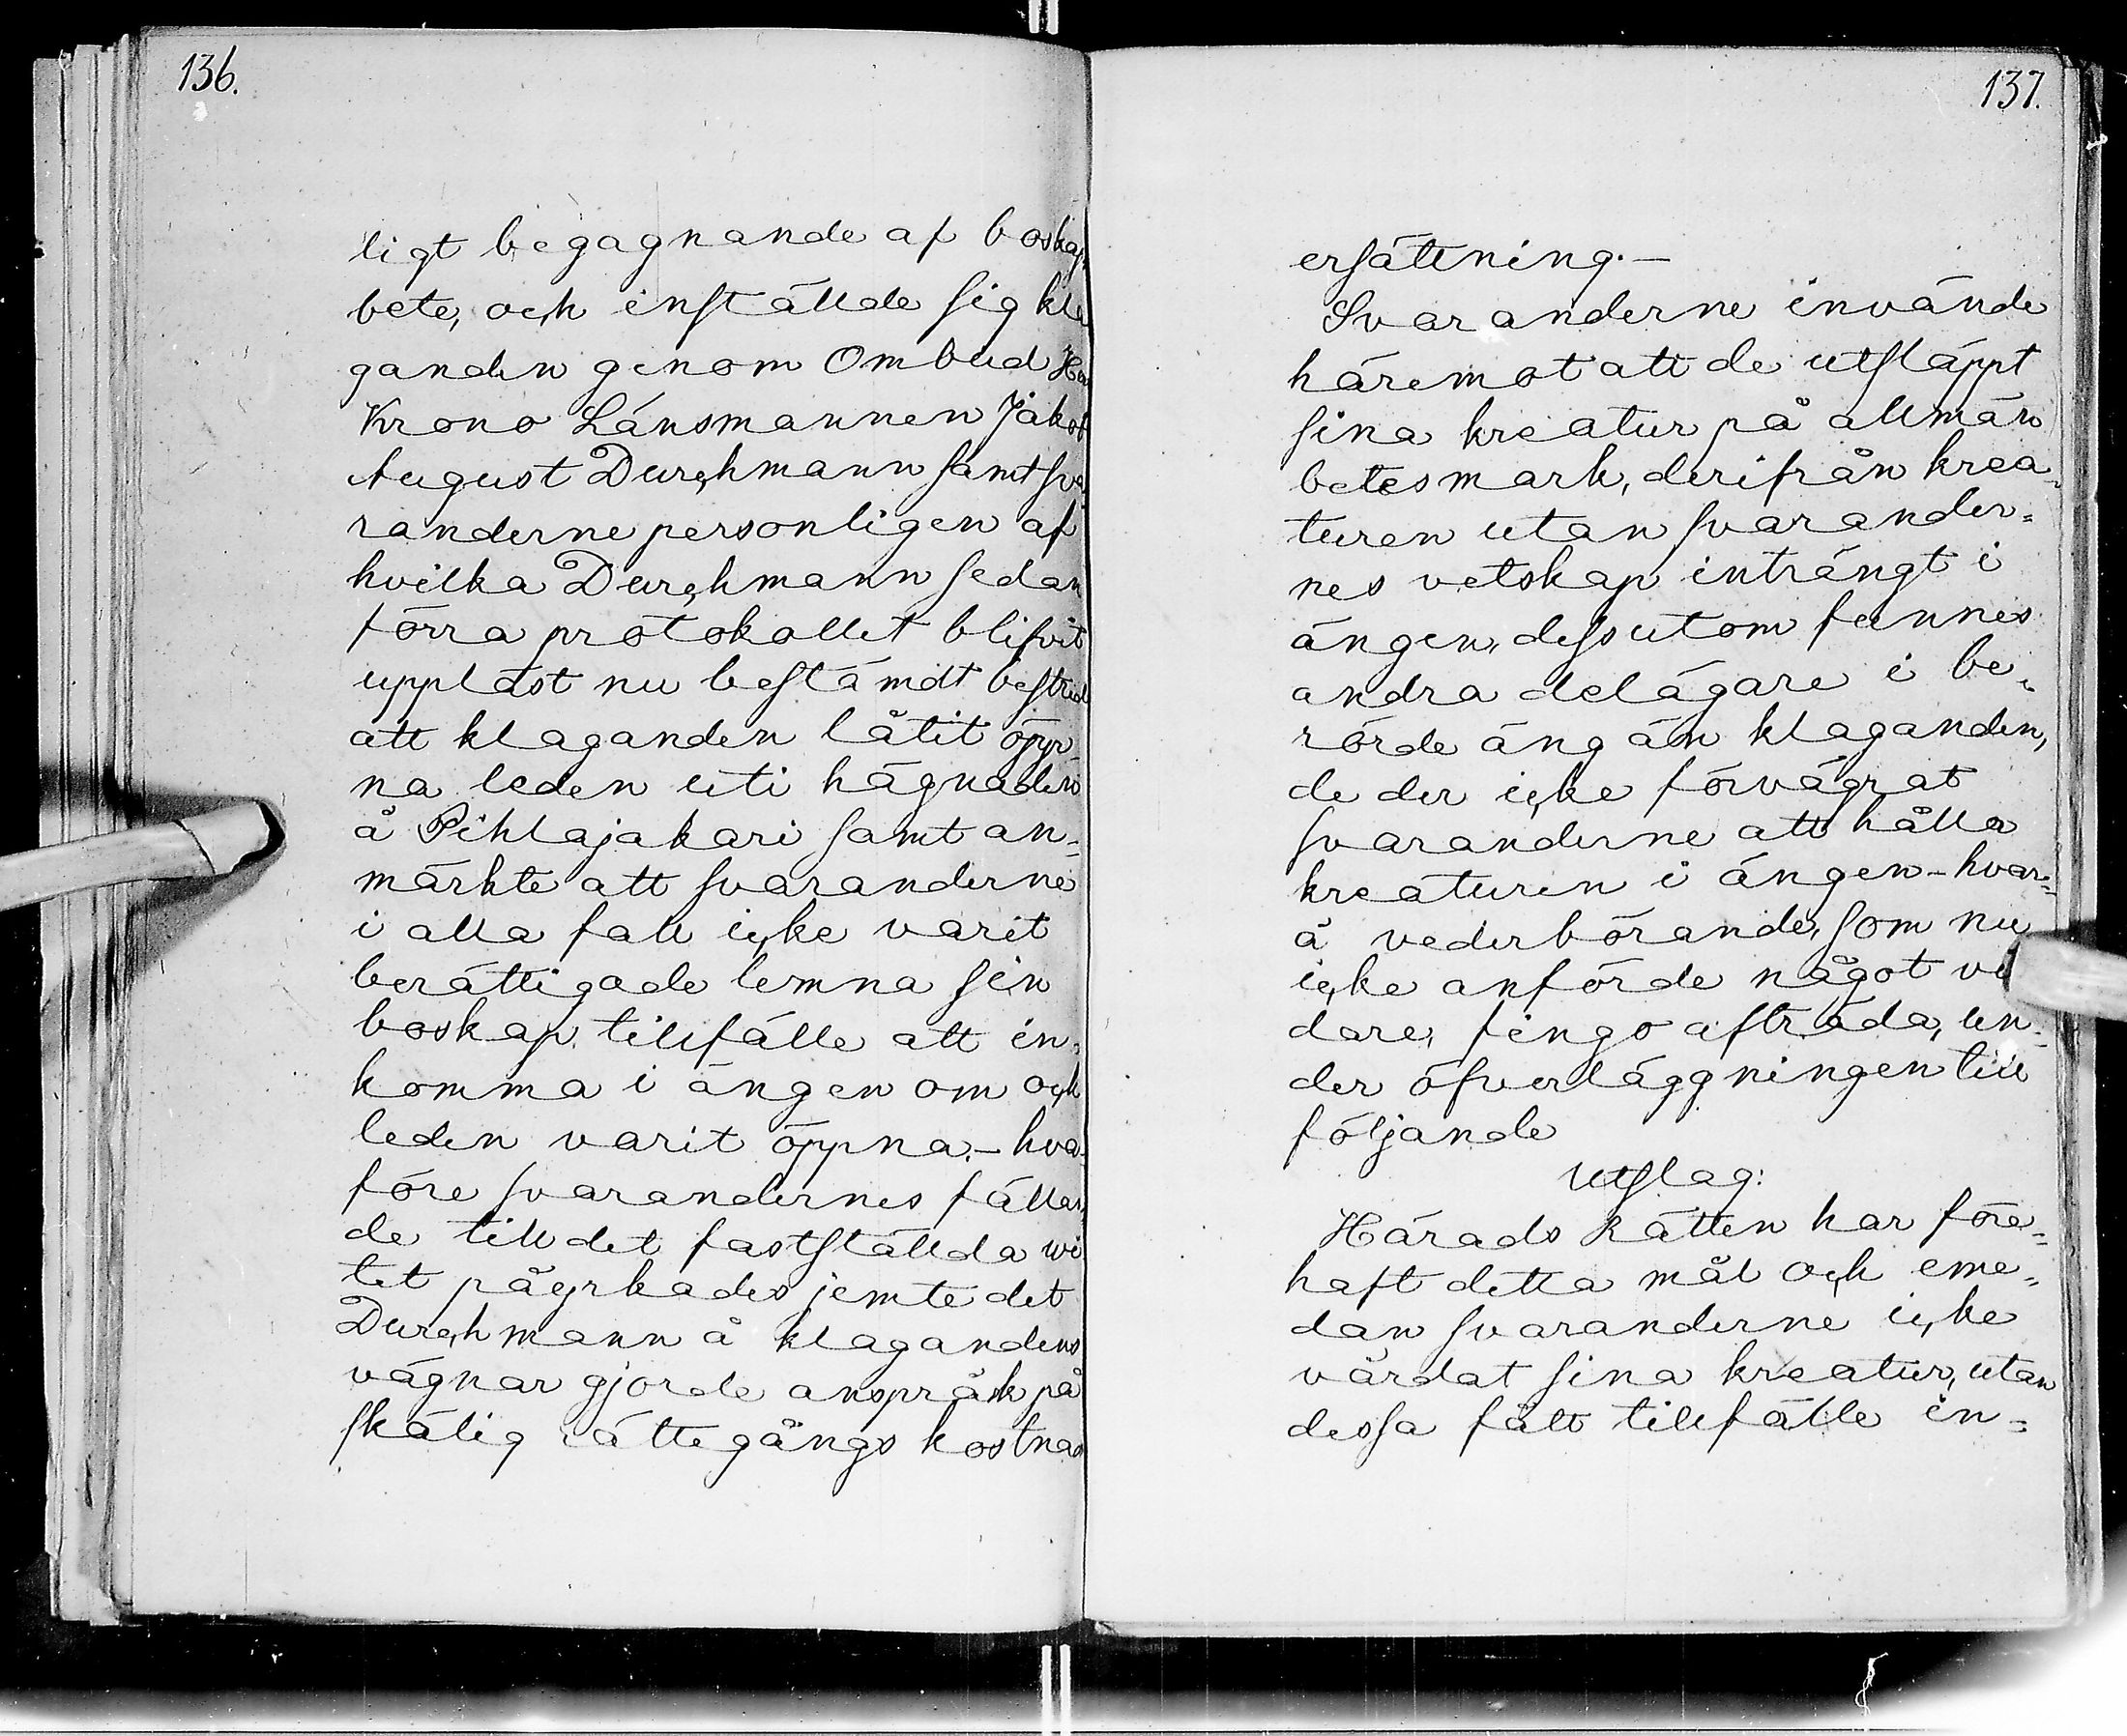 136.
ligt begagnande af boskaps
bete, och inställde sig kla
ganden genom Ombud Her
Krono Länsmannen Jakob
August Durchmann samt sva
randerne personligen af
hvilka Durchmann sedan
förra protokollet blifvit
uppläst nu bestämdt bestred
att klaganden låtit öpp¬
na leden uti hägnaden
å Pihlajakari samt an¬
märkte att svaranderne
i alla fall icke varit
berättigade lemna sin
boskap tillfälle att in¬
komma i ängen om och
leden varit öppna.- hva
före svarandernes fällan
de till det fastställda wi
tet påyrkades jemte det
Durchmann å klagandens
vägnar gjorde anspråk på
skälig rättegångs kostnad
137.
ersättning.-
Svaranderne invände
häremot att de utsläppt
sina kreatur på allmän
betesmark, derifrån krea¬
turen utan svarander¬
nes vetskap inträngt i
ängen, dessutom funnes
andra delägare i be¬
rörde äng än klaganden,
de der icke förvägrat
svaranderne att hålla
kreaturen i ängen - hvar¬
å vederbörande, som nu
icke anförde något vi
dare, fingo afträda, un¬
der öfverläggningen till
följande
Utslag:
Härads Rätten har före¬
haft detta mål och eme¬
dan svaranderne icke
vårdat sina kreatur, utan
dessa fått tillfälle in¬